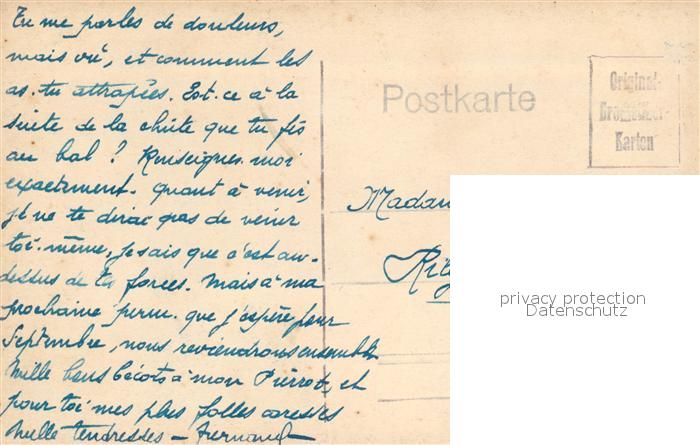 Tu me parles de douleurs,
mais où, et comment les
as-tu attrapées. Est-ce à la
suite de la chûte que tu fis
au bal ? Renseignes-moi
exactement. Quant à venir,
je ne te dirai pas de venir
toi-même, je sais que c'est au-
dessus de tes forces. Mais à ma
prochaine perm. que j'espère pour
Septembre, nous reviendrons ensemble
Mille bons bécots à mon Pierrot, et
pour toi mes plus folles caresses
Mille tendresses - Fernand
Postkarte
Original-
Karten
Madam
privacy protection
Datenschutz